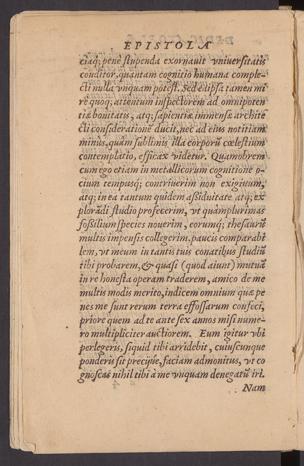 EPISTOLA
ciaq; penè stupenda exornauit vniuersitatis
conditor, quantam cognitio humana comple-
cti nulla vnquam potest. Sed & ipsa tamen mi
re quoq; attentum inspectorem ad omnipoten
tiæ bonitatis, atq; sapientiæ immensæ archite
cti consideratione ducit, nec ad eius notitiam
minus, quàm sublimis illa corporũ cœlestium
contemplatio, efficax videtur. Quamobrem
cum ego etiam in metallicorum cognitione o-
cium tempusq; contriuerim non exiguum,
atq; in ea tantum quidem assiduitate atq; ex
plorãdi studio profecerim, vt quamplurimas
fossilium species nouerim, eorumq; thesaurũ
multis impensis collegerim, paucis comparabi
lem, vt meum in tantis tuis conatibus studiũ
tibi probarem, & quasi (quod aiunt) mutuã
in re honesta operam traderem, amico de me
multis modis merito, indicem omnium quæ pe
nes me sunt rerum terra effossarum confeci,
priore quem ad te ante sex annos misi nume-
ro multipliciter auctiorem. Eum igitur vbi
perlegeris, siquid tibi arridebit, cuiuscunque
ponderis sit precipe, faciam admonitus, vt co
gnoscas nihil tibi à me vnquam denegatũ iri.
Nam